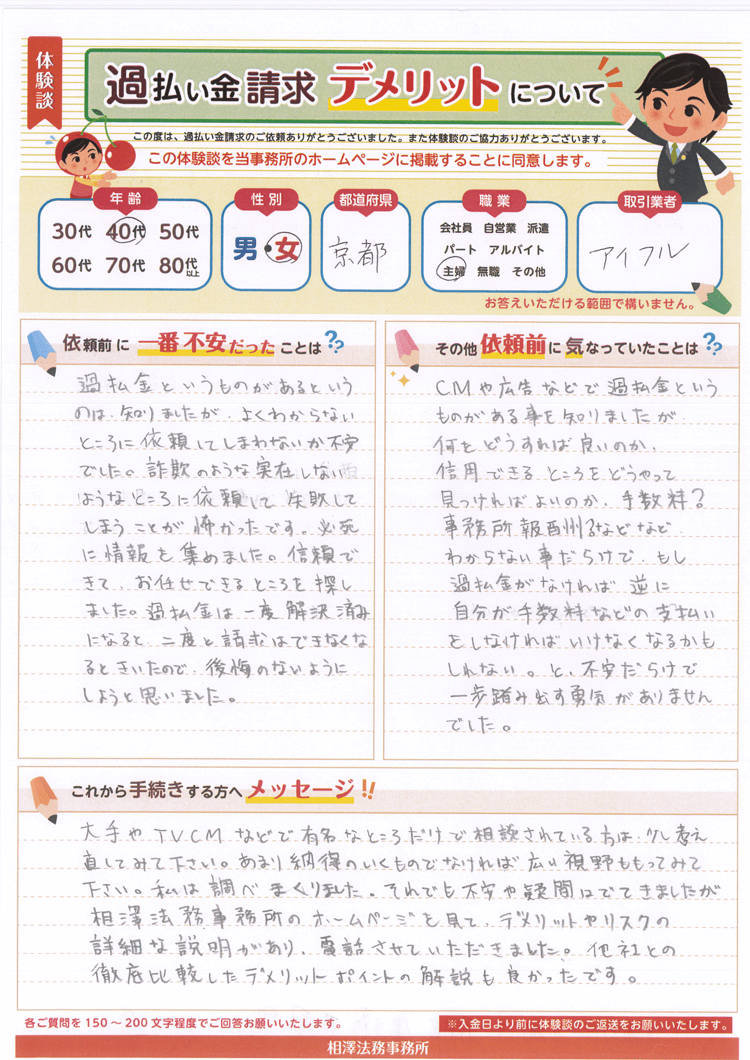 体験談
過払い金請求 デメリットについて
この度は、過払い金請求のご依頼ありがとうございました。また体験談のご協力ありがとうございます。
この体験談を当事務所のホームページに掲載することに同意します。
年齢
30代 40代 50代
60代 70代 80代以上
性別
男・女
都道府県
京都
職業
会社員 自営業 派遣
パート アルバイト
主婦 無職 その他
取引業者
アイフル
お答えいただける範囲で構いません。
依頼前に一番不安だったことは??
過払金というものがあるという
のは、知りましたが、よくわからない
ところに依頼してしまわないか不安
でした。詐欺のような実在しない
ようなところに依頼して失敗して
しまうことが怖かったです。必死
に情報を集めました。信頼で
きて、お任せできるところを探し
ました。過払金は一度解決済み
になると、二度と請求はできなくな
るときいたので、後悔のないように
しようと思いました。
その他依頼前に気なっていたことは??
CMや広告などで過払金という
ものがある事を知りましたが
何をどうすれば良いのか、
信用できるところをどうやって
見つければよいのか、手数料?
事務所報酬?などなど
わからない事だらけで、もし
過払金がなければ逆に
自分が手数料などの支払い
をしなければいけなくなるかも
しれない。と、不安だらけで
一歩踏み出す勇気がありません
でした。
これから手続きする方へメッセージ!!
大手やTVCMなどで有名なところだけで相談されている方は、少し考え
直してみて下さい。あまり納得のいくものでなければ広い視野ももってみて
下さい。私は調べまくりました。それでも不安や疑問はでてきましたが
相澤法務事務所のホームページを見て、デメリットやリスクの
詳細な説明があり、電話させていただきました。他社との
徹底比較したデメリットポイントの解説も良かったです。
各ご質問を150~200文字程度でご回答お願いいたします。
※入金日より前に体験談のご返送をお願いいたします。
相澤法務事務所